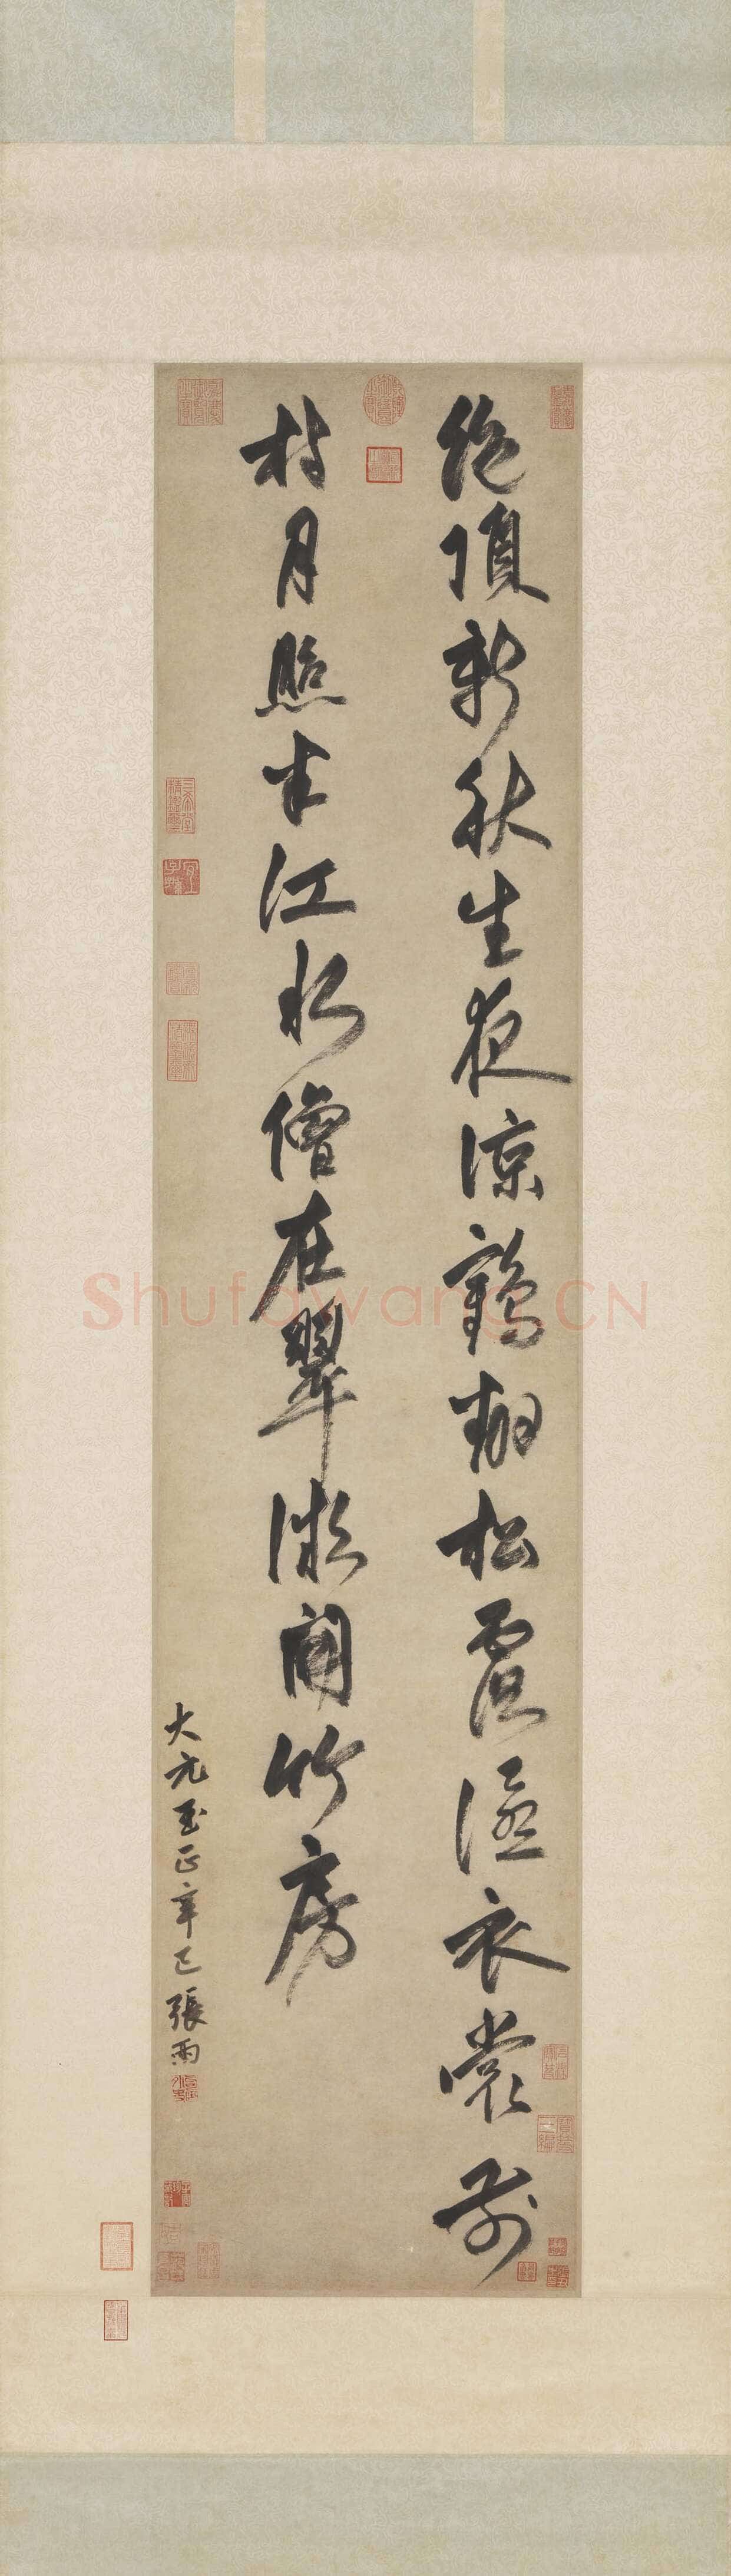 絶頂新秋生夜涼鶴翻松露滴衣裳前
村月照半江水僧在翠微開竹房
大元至正辛巳張雨
Shufawang.CN